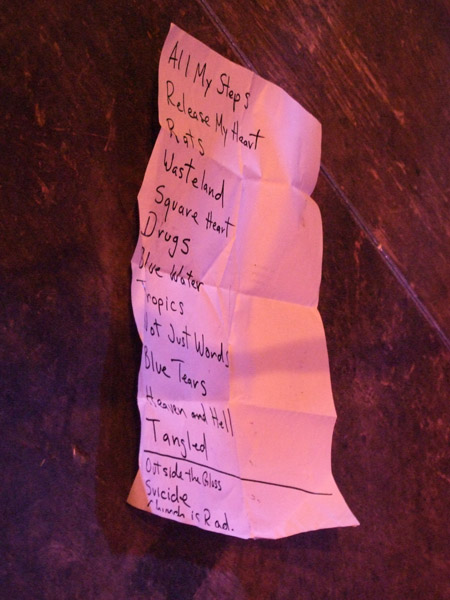 All My Steps
Release My Heart
Rats
Wasteland
Square Heart
Drugs
Blue Water
Tropics
Not Just Words
Blue Tears
Heaven and Hell
Tangled
Outside the Glass
Suicide
is Rad.